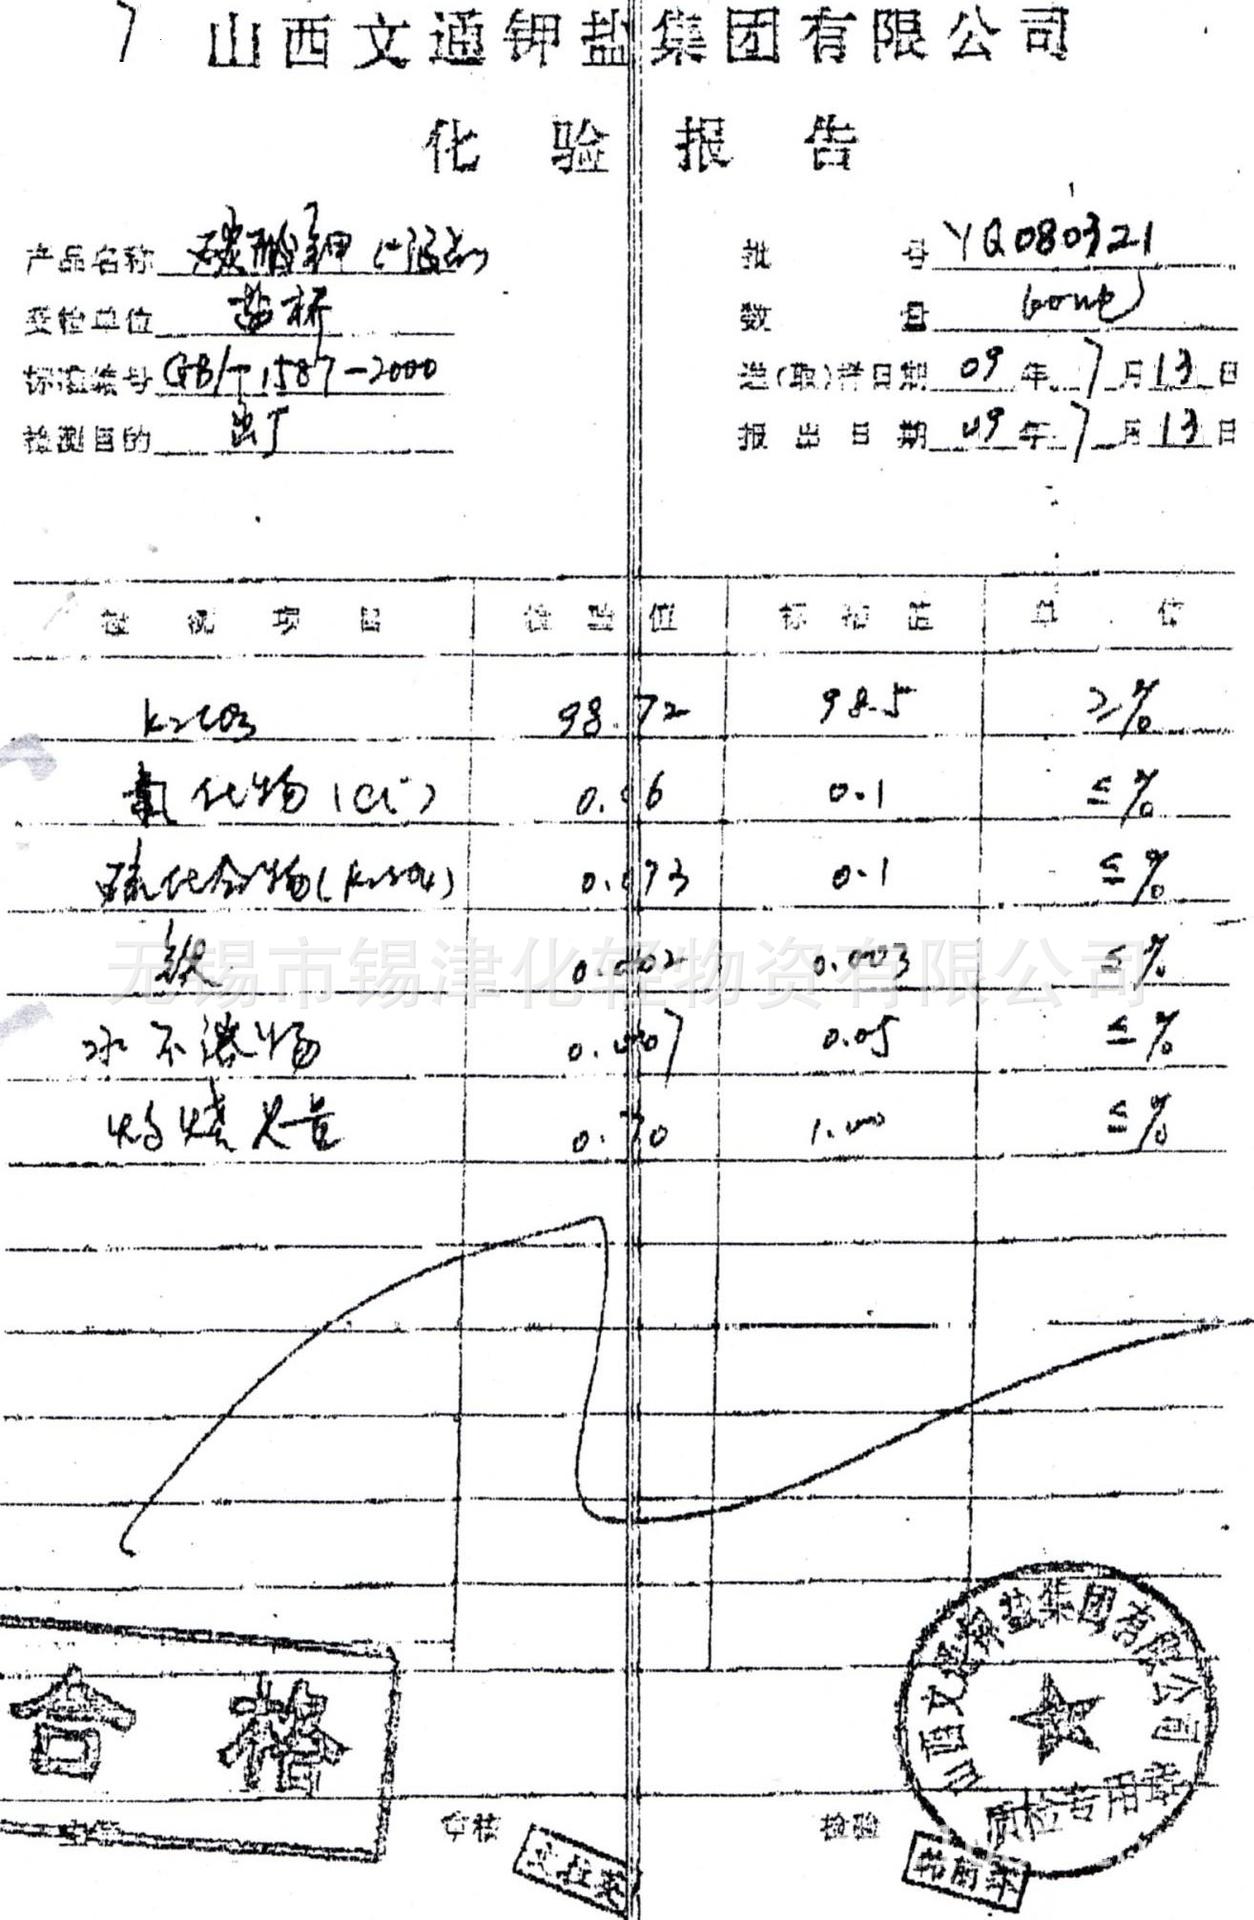 山西文通钾盐集团有限公司
化验报告
产品名称 碳酸钾 批号 YQ080321
受检单位 盐桥 数量
标准编号 GB/T1587-2000 送(取)样日期 09年7月13日
检测目的 出厂 报出日期 09年7月13日
检测项目 检验值 标指值 单位
K2CO3 98.72 98.5 ≥%
氯化物(Cl-) 0.06 0.1 ≤%
硫化合物(K2SO4) 0.073 0.1 ≤%
铁 0.002 0.003 ≤%
无锡市锡津化轻物资有限公司
水不溶物 0.007 0.05 ≤%
灼烧失量 0.70 1.00 ≤%
合格
山西文通钾盐集团有限公司
质检专用章
审核 检验